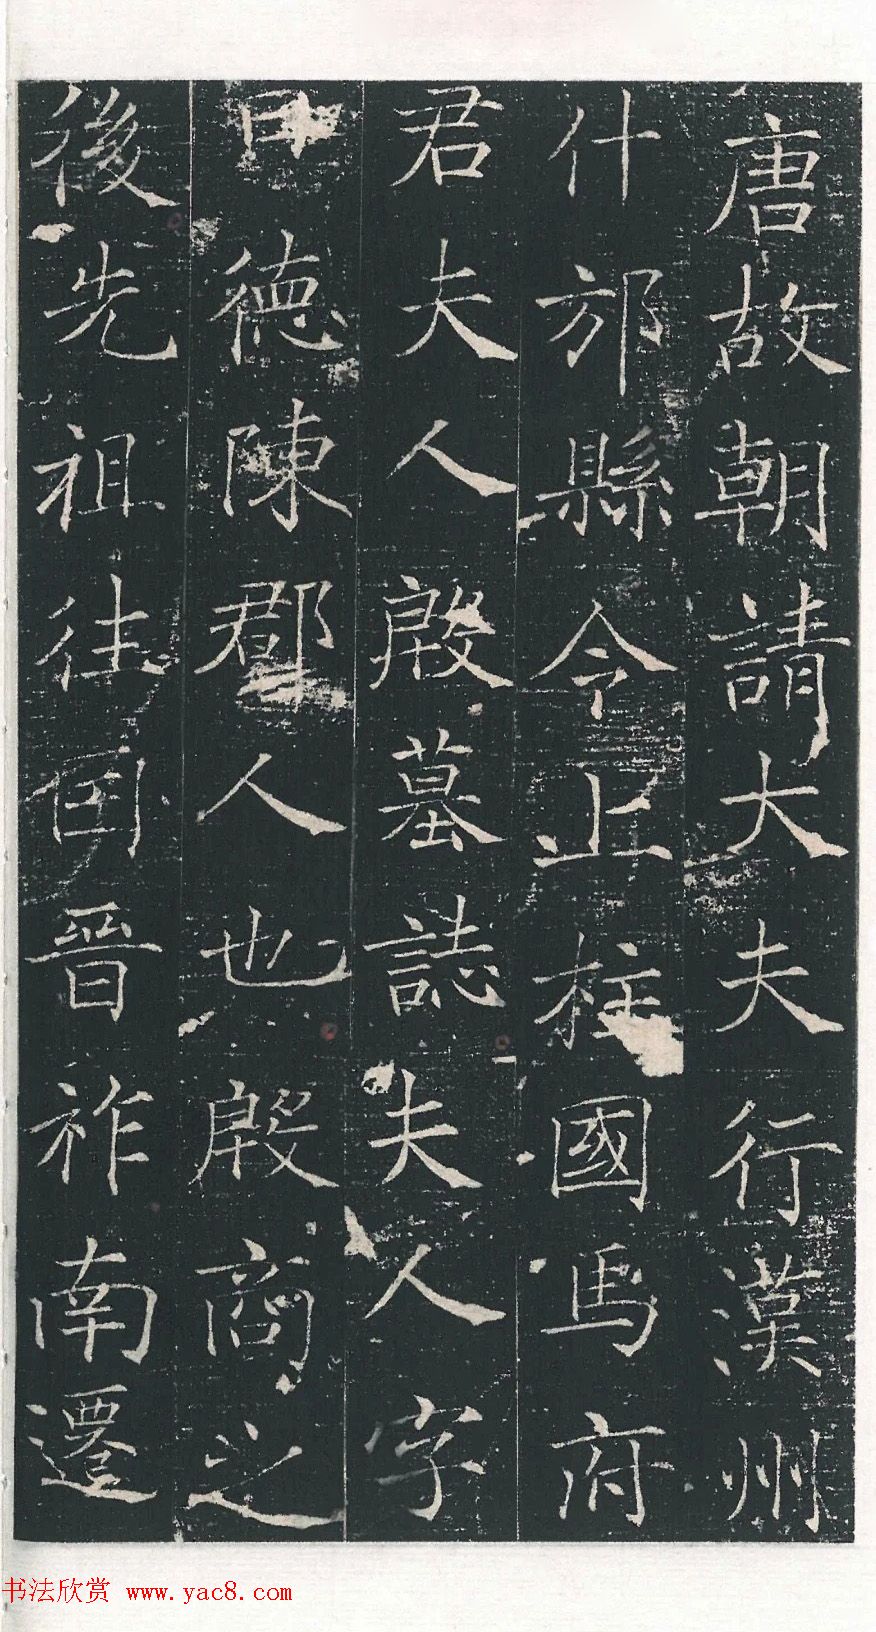 唐故朝請大夫行漢州
什邡縣令上柱國馬府
君夫人殷墓誌夫人字
曰德陳郡人也殷商之
後先祖往因晉祚南遷
书法欣赏 www.yac8.com